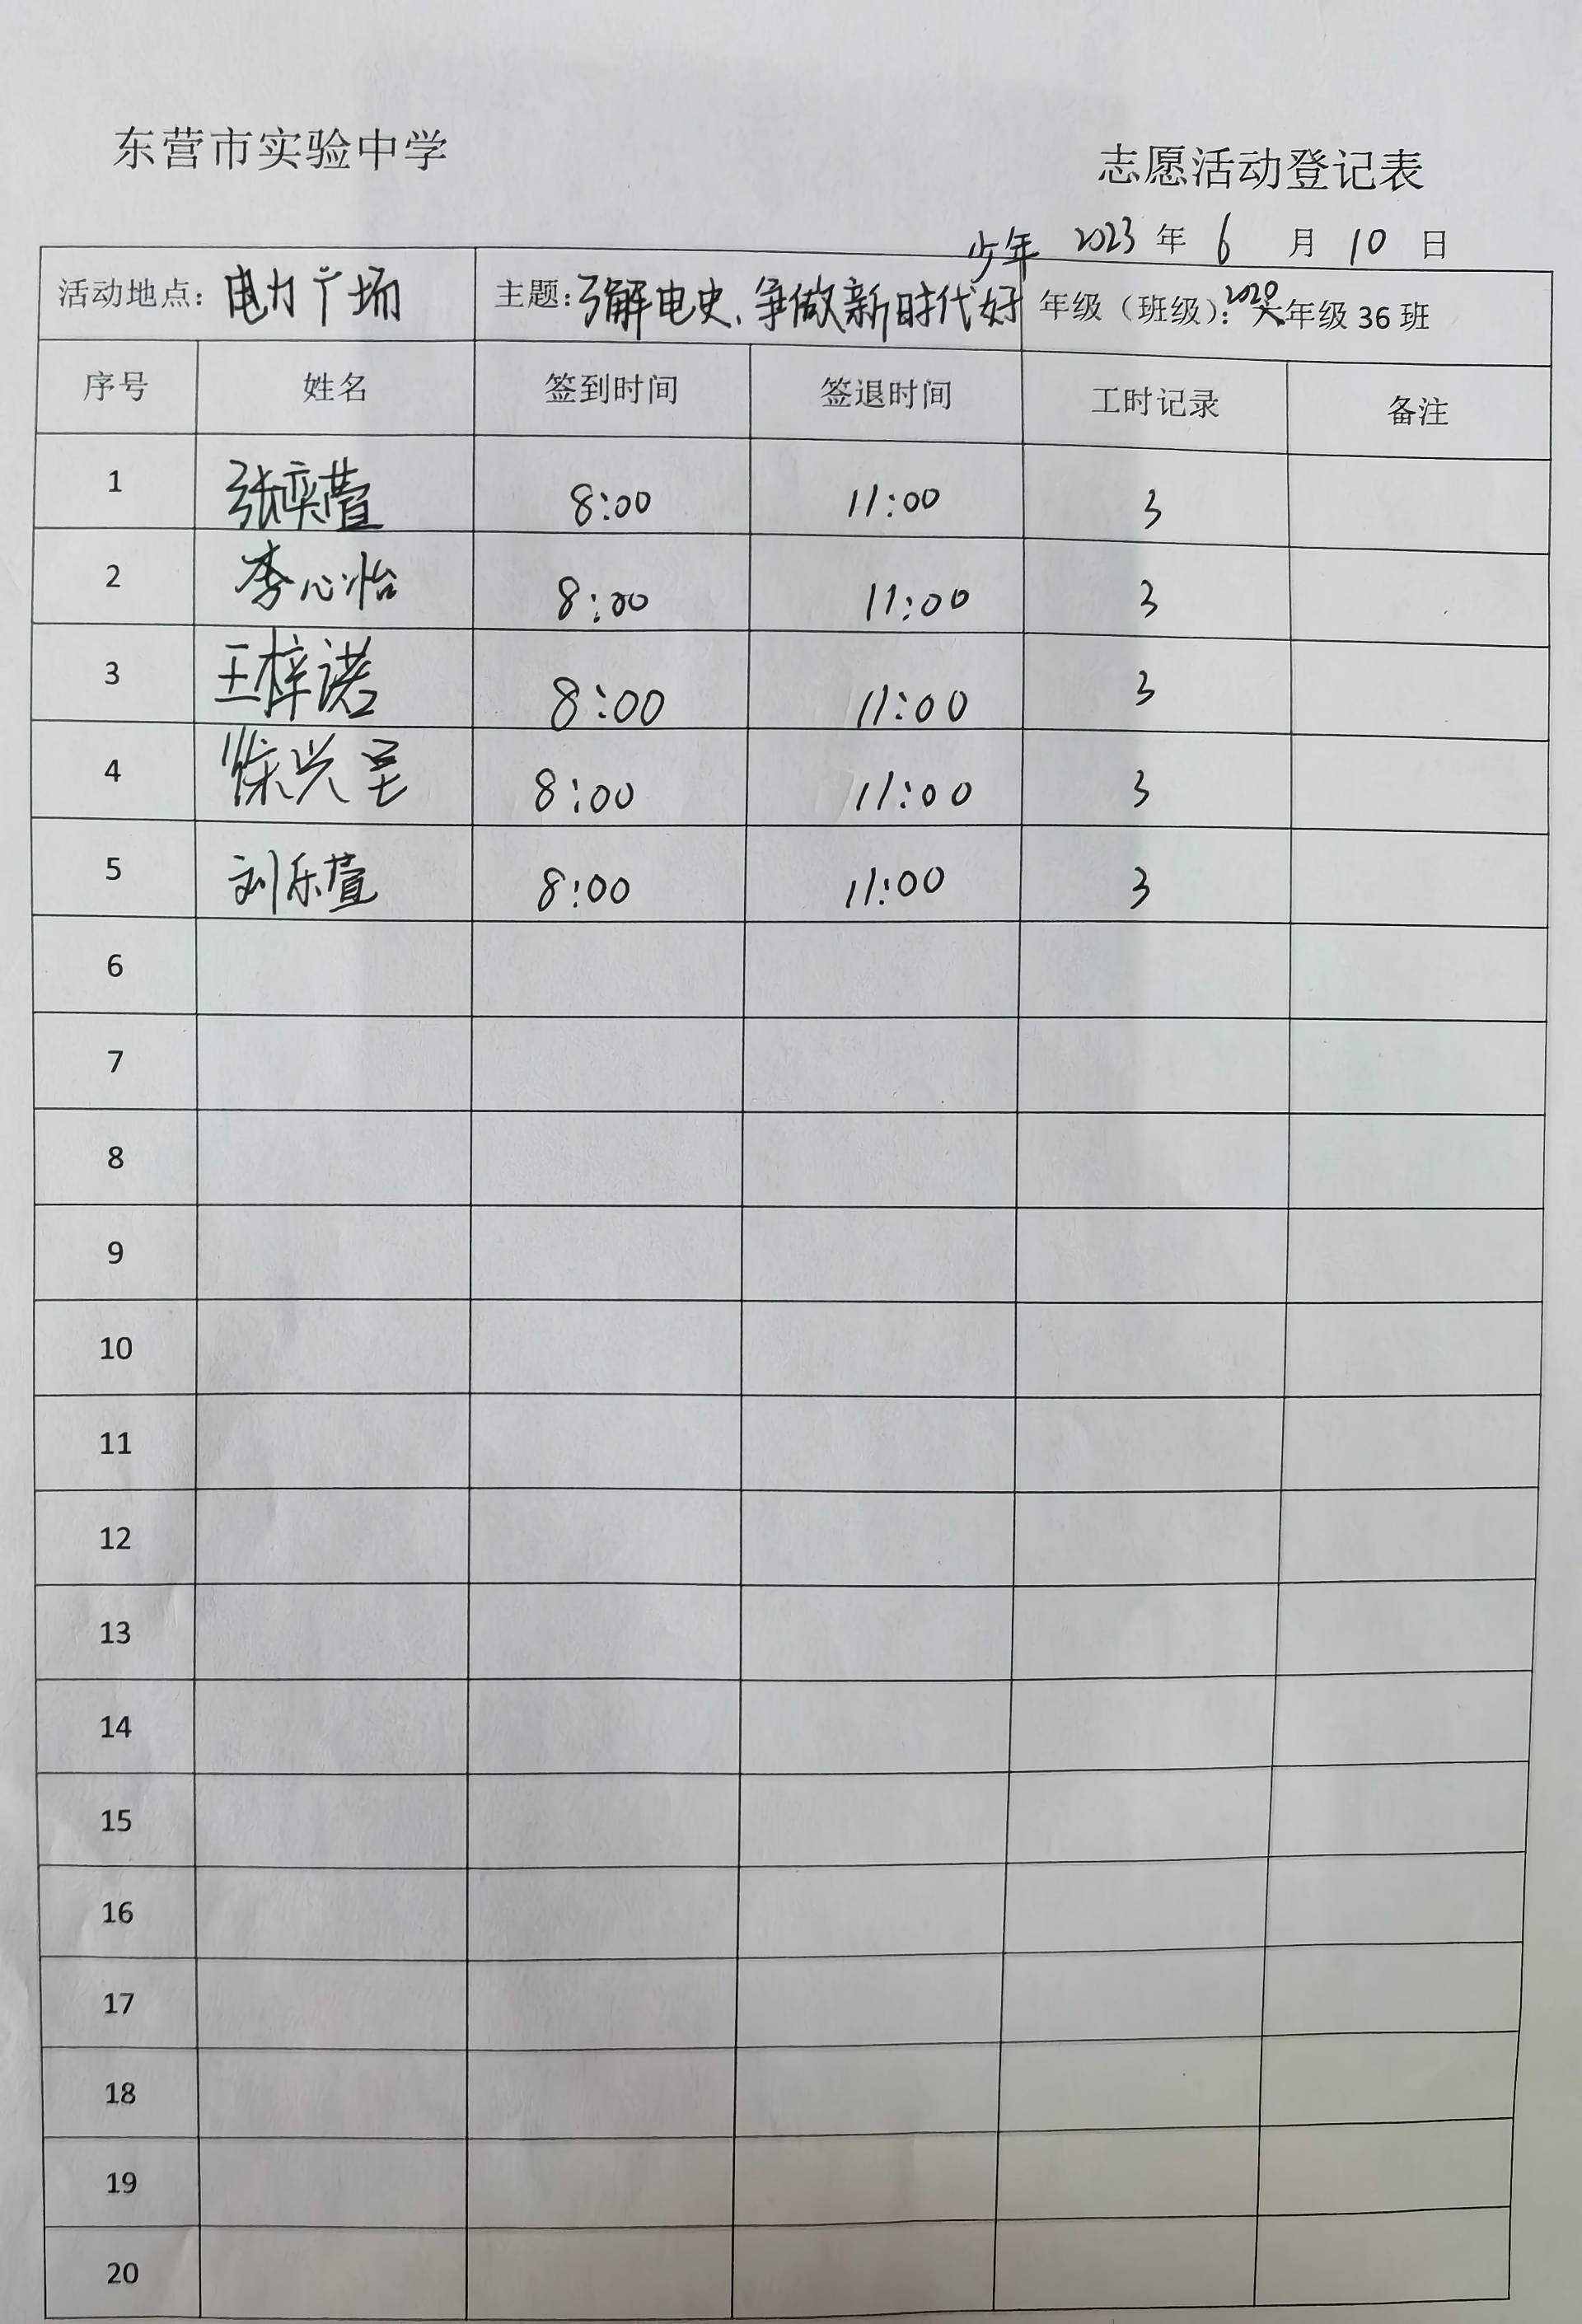 东营市实验中学 志愿活动登记表
2023 年 6 月 10 日
活动地点：电力广场 主题：了解电史、争做新时代好少年 年级（班级）：2020年级 36 班
序号 姓名 签到时间 签退时间 工时记录 备注
1 张奕萱 8:00 11:00 3
2 李心怡 8:00 11:00 3
3 王梓诺 8:00 11:00 3
4 徐兴 8:00 11:00 3
5 刘乐萱 8:00 11:00 3
6
7
8
9
10
11
12
13
14
15
16
17
18
19
20